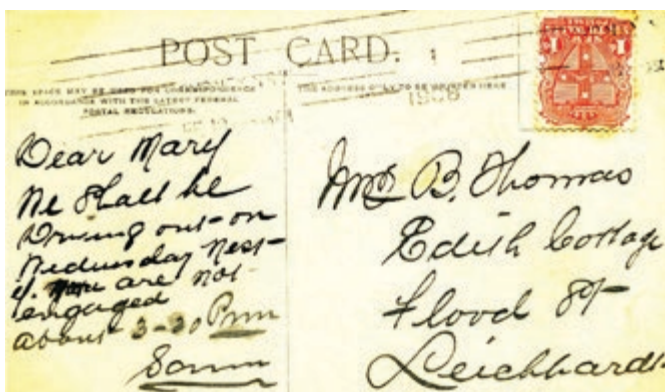 POST CARD.
THIS SPACE MAY BE USED FOR CORRESPONDENCE
IN ACCORDANCE WITH THE LATEST FEDERAL
POSTAL REGULATIONS.
THE ADDRESS ONLY TO BE WRITTEN HERE
1908
1 1
Dear Mary
We shall be
Driving out on
Wednesday next
if you are not
engaged
about 3-30 Pm
Mrs B. Thomas
Edith Cottage
Flood St
Leichhardt